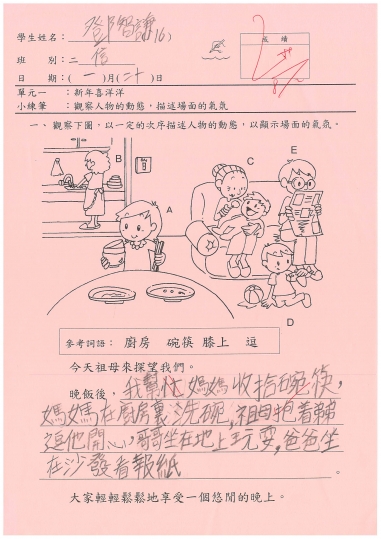 學生姓名：鄧智謙(6)
成績
班　別：二信
日　期：(一)月(二十)日
單元一　：新年喜洋洋
小練筆　：觀察人物的動態，描述場面的氣氛
一、觀察下圖，以一定的次序描述人物的動態，以顯示場面的氣氛。
B
C
E
A
D
參考詞語：　廚房　碗筷　膝上　逗
今天祖母來探望我們。
晚飯後，我幫忙媽媽收拾碗筷，
媽媽在廚房裏洗碗，祖母抱着弟弟
逗他開心，哥哥坐在地上玩耍，爸爸坐
在沙發看報紙。
大家輕輕鬆鬆地享受一個悠閒的晚上。